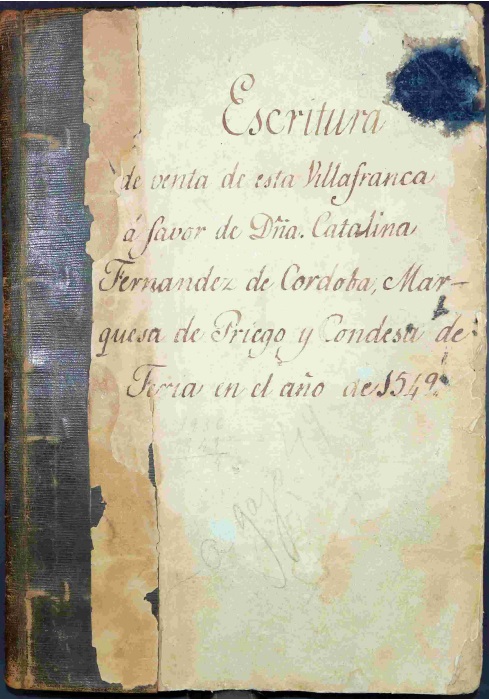 Escritura
de venta de esta Villafranca
á favor de Dña. Catalina
Fernandez de Cordoba, Mar-
quesa de Priego y Condesa de
Feria en el año de 1549.